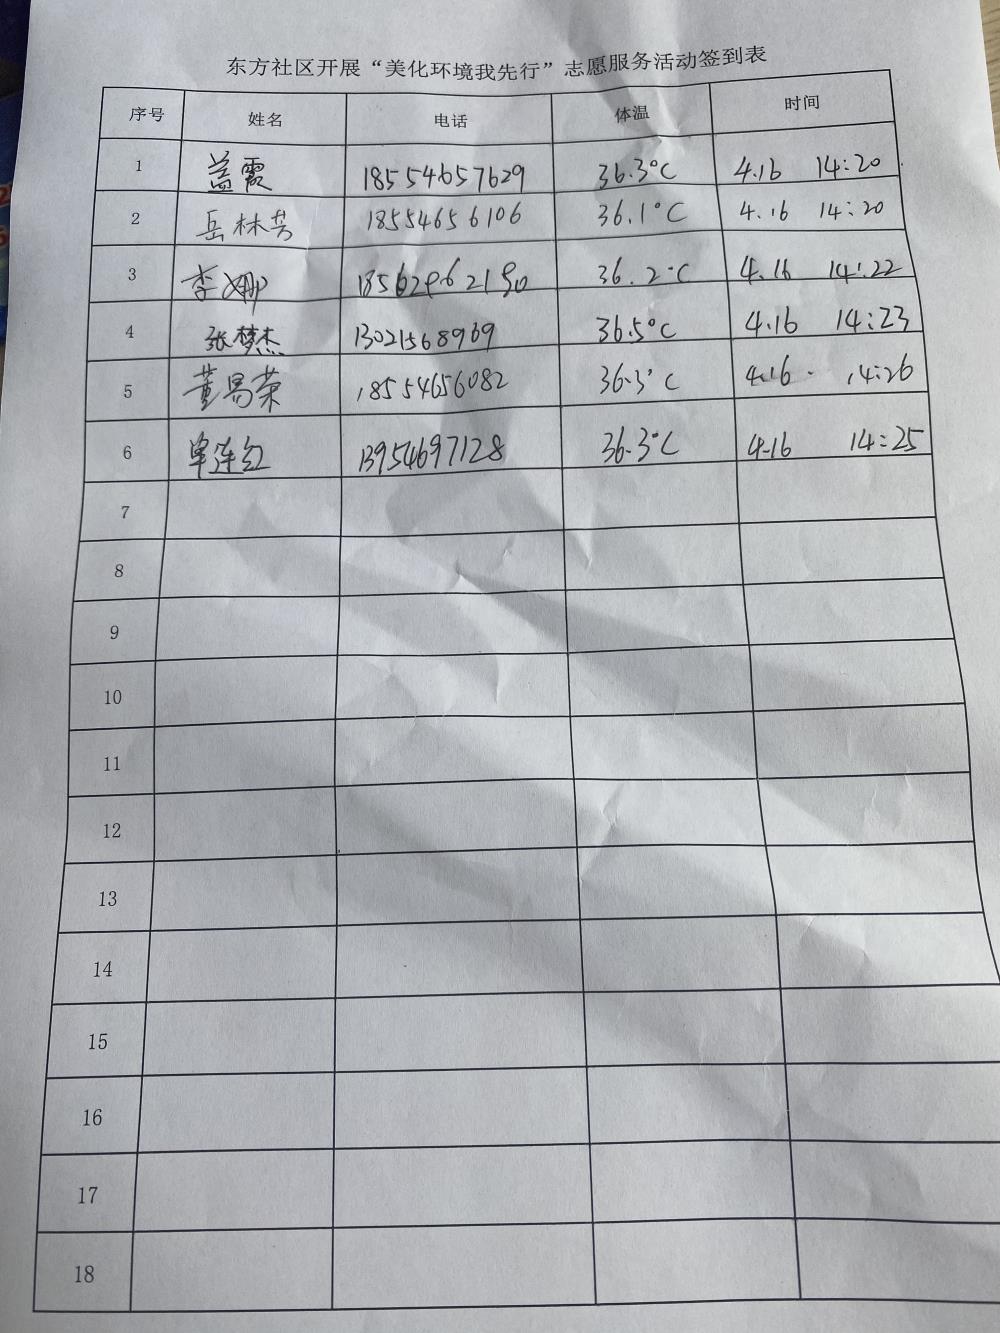 东方社区开展“美化环境我先行”志愿服务活动签到表
序号 姓名 电话 体温 时间
1 盖霞 18554657629 36.3℃ 4.16 14:20
2 岳林芳 18554656106 36.1℃ 4.16 14:20
3 李娜 36.2℃ 4.16 14:22
4 张梦杰 13021568969 36.5℃ 4.16 14:23
5 董易荣 18554656082 36.3℃ 4.16 14:26
6 单连红 13954697128 36.3℃ 4.16 14:25
7
8
9
10
11
12
13
14
15
16
17
18